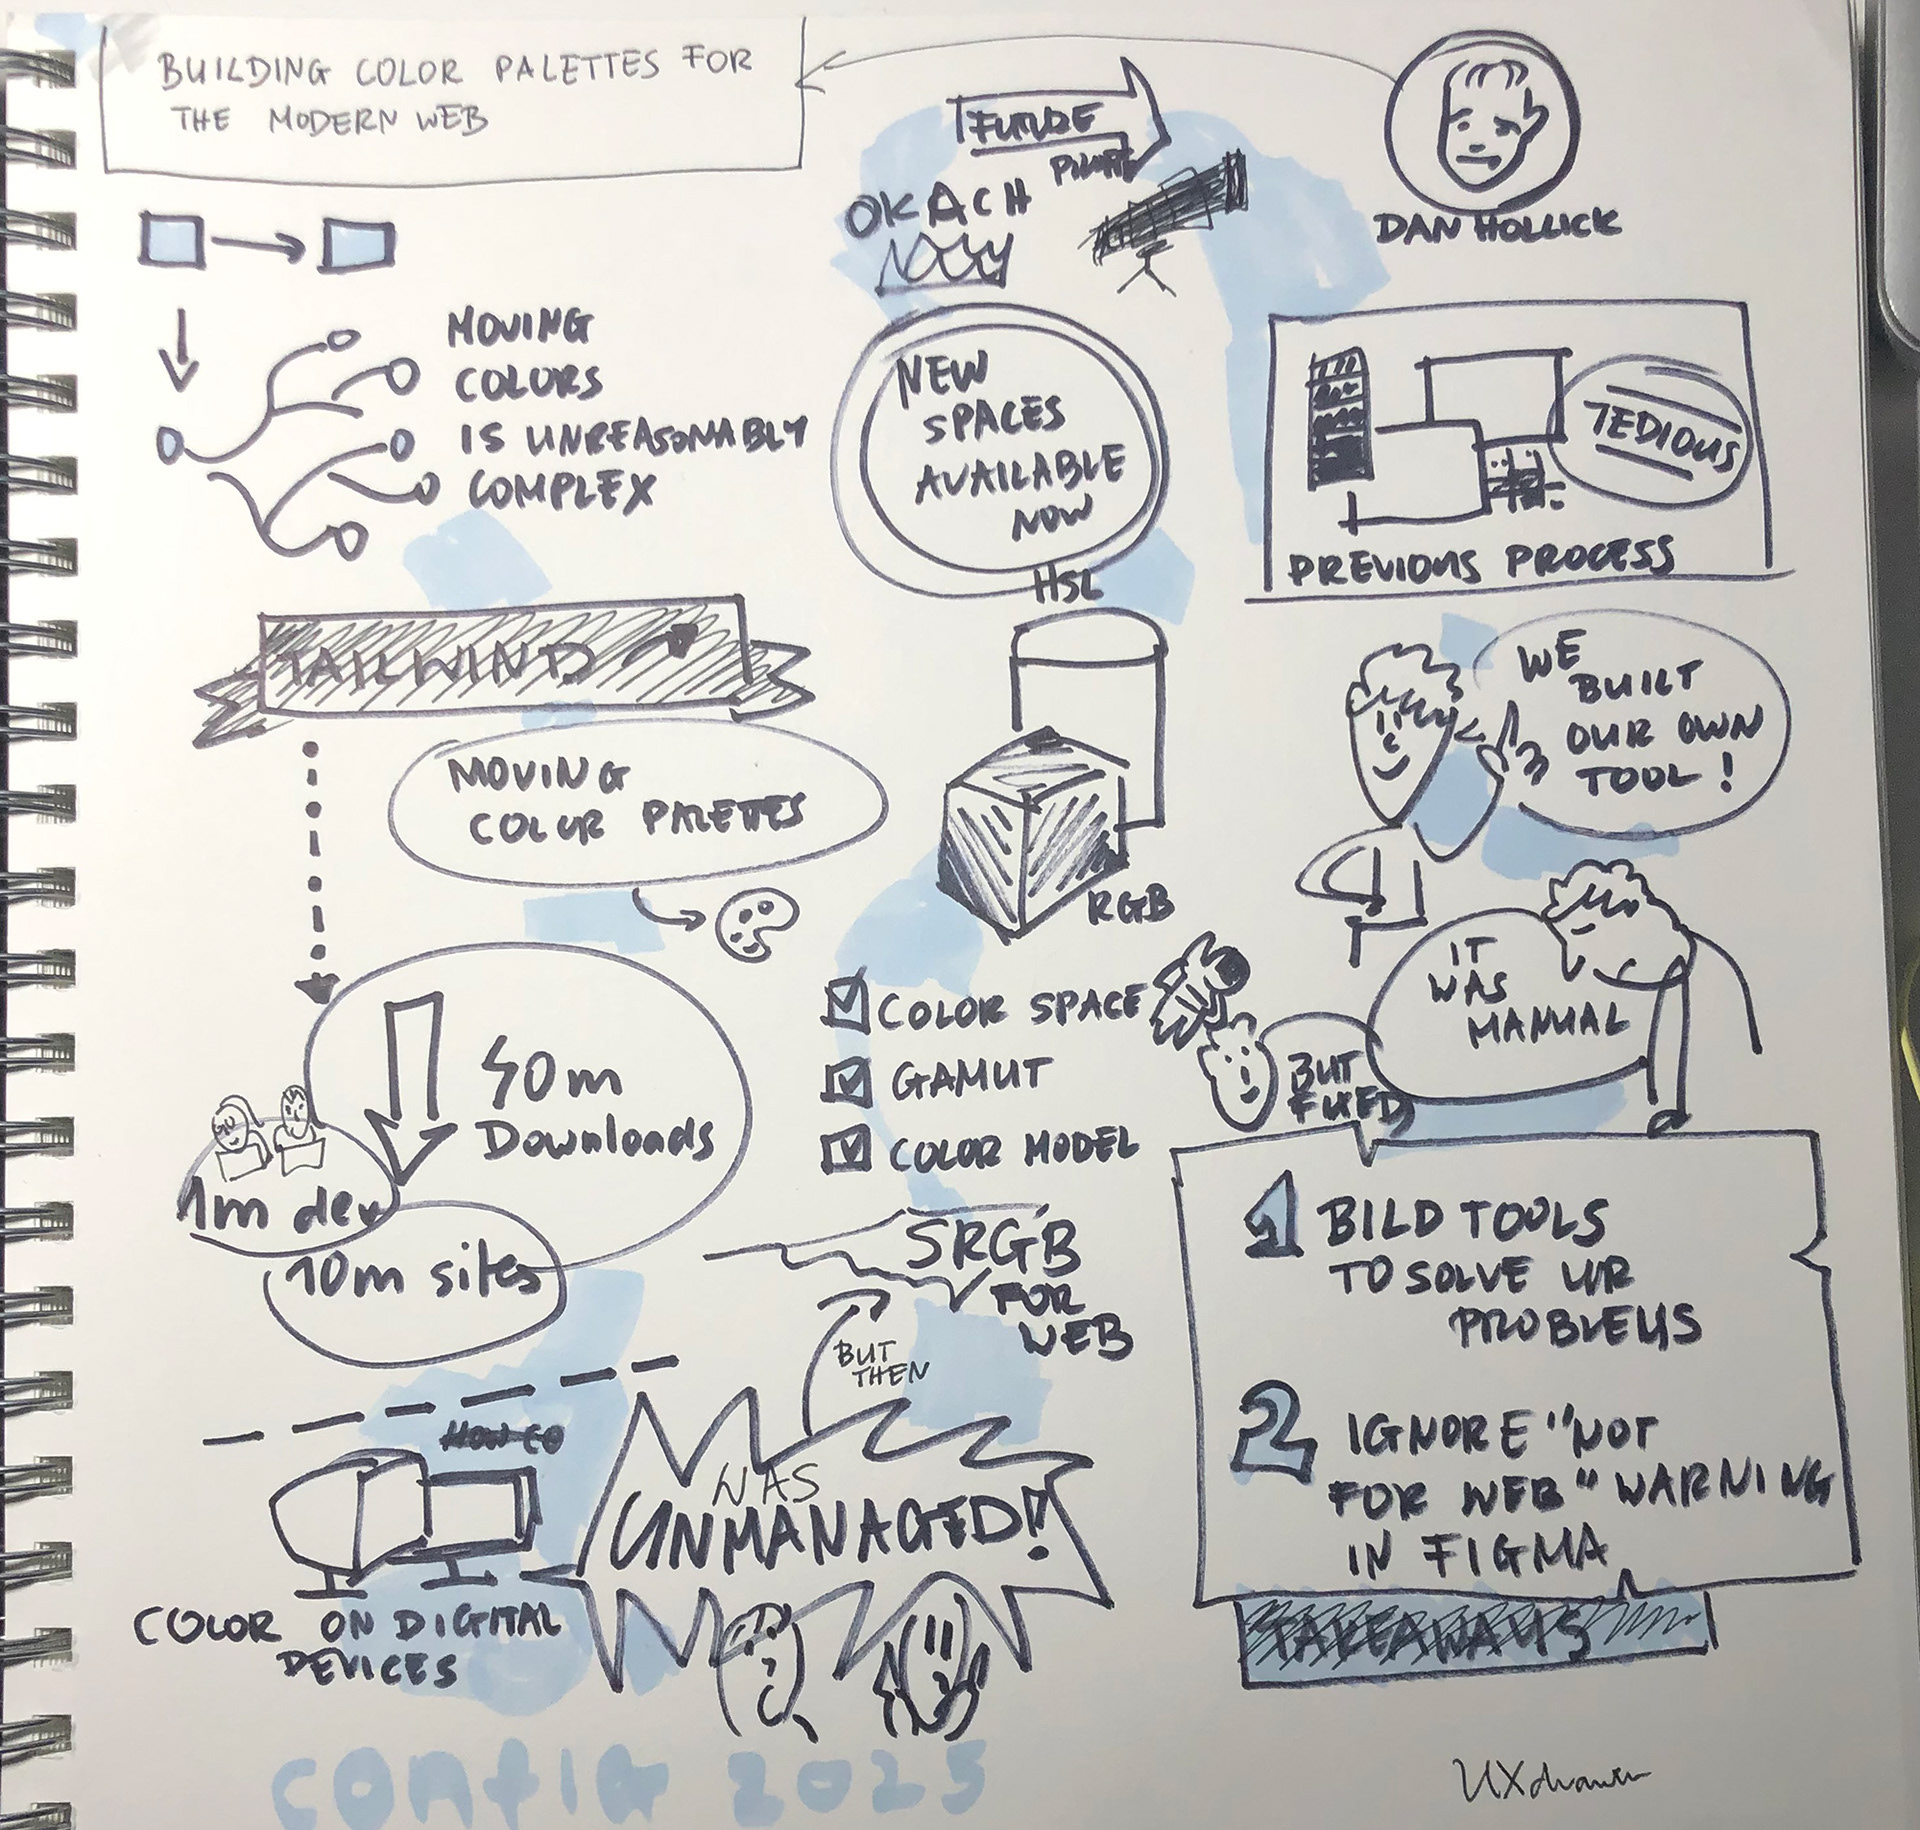 BUILDING COLOR PALETTES FOR
THE MODERN WEB
DAN HOLLICK
MOVING
COLORS
IS UNREASONABLY
COMPLEX
TAILWIND
MOVING
COLOR PALETTES
40m
Downloads
1m dev
10m sites
COLOR ON DIGITAL
DEVICES
WAS
UNMANAGED!!
BUT
THEN
SRGB
FOR
WEB
COLOR SPACE
GAMUT
COLOR MODEL
RGB
HSL
NEW
SPACES
AVAILABLE
NOW
OKACH
FUTURE
TEDIOUS
PREVIOUS PROCESS
WE
BUILT
OUR OWN
TOOL!
IT
WAS
MANUAL
BUT
FIXED
1 BILD TOOLS
TO SOLVE UR
PROBLEMS
2 IGNORE "NOT
FOR WEB" WARNING
IN FIGMA
TAKEAWAYS
config 2025
UXdrawer